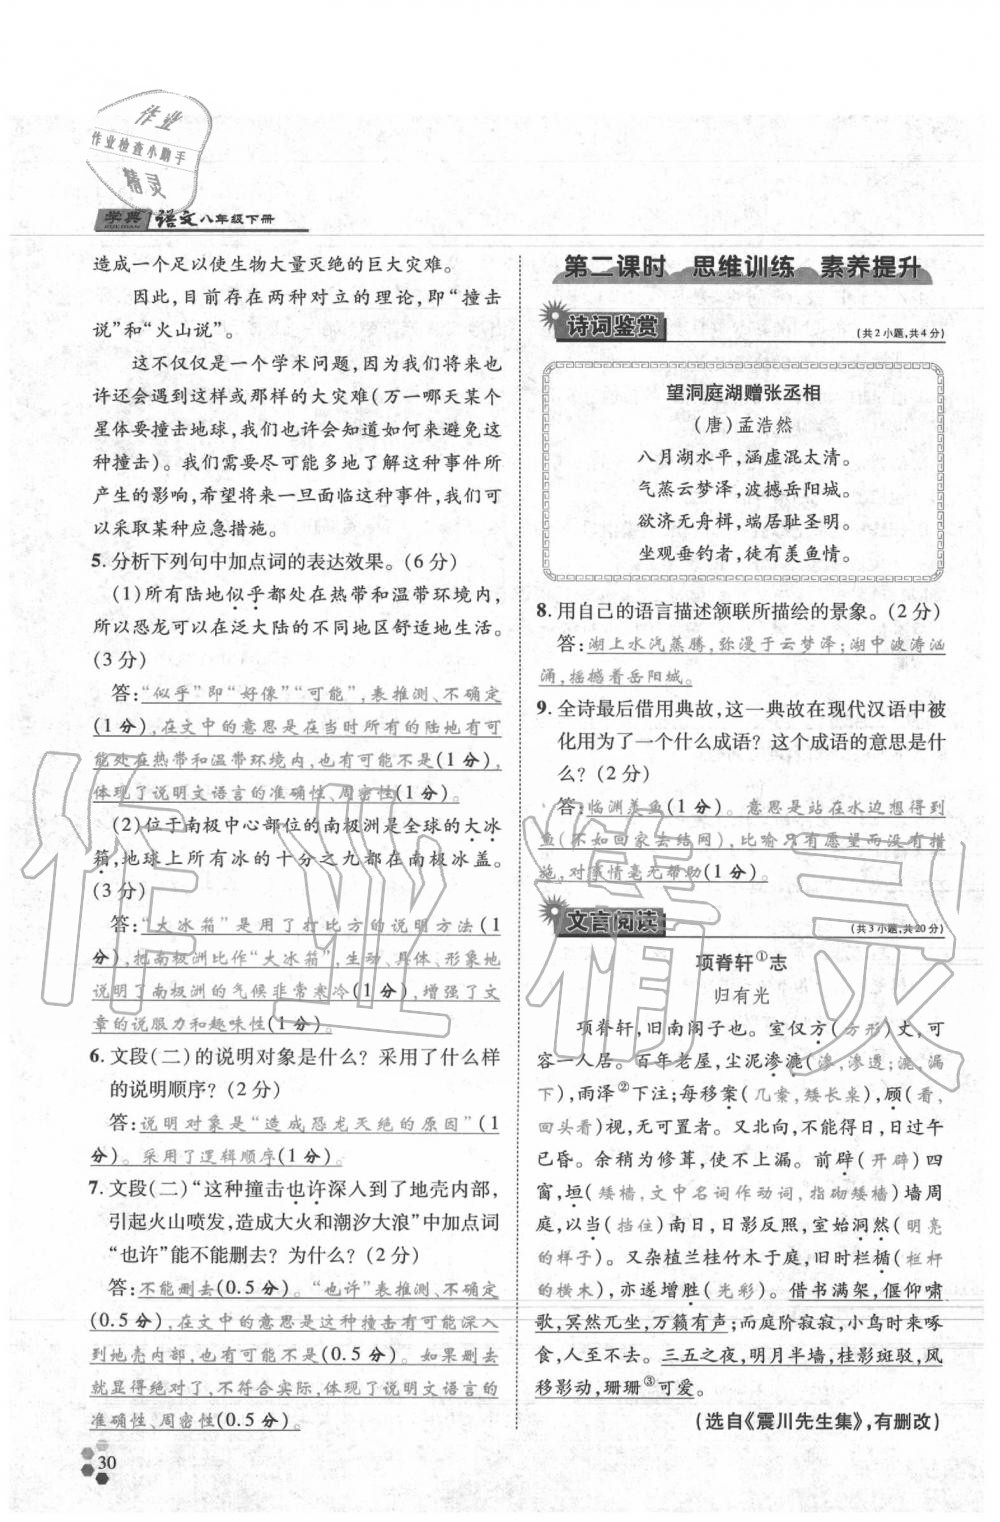 作业
作业检查小助手
精灵
学典 语文八年级下册
造成一个足以使生物大量灭绝的巨大灾难。
因此,目前存在两种对立的理论,即“撞击
说”和“火山说”。
这不仅仅是一个学术问题,因为我们将来也
许还会遇到这样或那样的大灾难(万一哪天某个
星体要撞击地球,我们也许会知道如何来避免这
种撞击)。我们需要尽可能多地了解这种事件所
产生的影响,希望将来一旦面临这种事件,我们可
以采取某种应急措施。
5. 分析下列句中加点词的表达效果。(6 分)
(1)所有陆地似乎都处在热带和温带环境内,
所以恐龙可以在泛大陆的不同地区舒适地生活。
(3 分)
答:“似乎”即“好像”“可能”,表推测、不确定
(1 分),在文中的意思是在当时所有的陆地有可
能处在热带和温带环境内,也有可能不是(1 分),
体现了说明文语言的准确性、周密性(1 分)。
(2)位于南极中心部位的南极洲是全球的大冰
箱,地球上所有冰的十分之九都在南极冰盖。
(3 分)
答:“大冰箱”是用了打比方的说明方法(1
分),把南极洲比作“大冰箱”,生动、具体、形象地
说明了南极洲的气候非常寒冷(1 分),增强了文
章的说服力和趣味性(1 分)。
6. 文段(二)的说明对象是什么? 采用了什么样
的说明顺序? (2 分)
答:说明对象是“造成恐龙灭绝的原因”(1
分)。采用了逻辑顺序(1 分)。
7. 文段(二)“这种撞击也许深入到了地壳内部,
引起火山喷发,造成大火和潮汐大浪”中加点词
“也许”能不能删去? 为什么? (2 分)
答:不能删去(0.5 分)。“也许”表推测、不确定
(0.5 分),在文中的意思是这种撞击有可能深入
到地壳内部,也有可能不是(0.5 分)。如果删去
就显得绝对了,不符合实际,体现了说明文语言的
准确性、周密性(0.5 分)。
30
第二课时 思维训练 素养提升
诗词鉴赏 (共 2 小题,共 4 分)
望洞庭湖赠张丞相
(唐)孟浩然
八月湖水平,涵虚混太清。
气蒸云梦泽,波撼岳阳城。
欲济无舟楫,端居耻圣明。
坐观垂钓者,徒有羡鱼情。
8. 用自己的语言描述颔联所描绘的景象。(2 分)
答:湖上水汽蒸腾,弥漫于云梦泽;湖中波涛汹
涌,摇撼着岳阳城。
9. 全诗最后借用典故,这一典故在现代汉语中被
化用为了一个什么成语? 这个成语的意思是什
么? (2 分)
答:临渊羡鱼(1 分)。意思是站在水边想得到
鱼(不如回家去结网),比喻只有愿望而没有措
施,对事情毫无帮助(1 分)。
文言阅读 (共 3 小题,共 20 分)
项脊轩①志
归有光
项脊轩,旧南阁子也。室仅方(方形)丈,可
容一人居。百年老屋,尘泥渗漉(渗,渗透;漉,漏
下),雨泽②下注;每移案(几案,矮长桌),顾(看,
回头看)视,无可置者。又北向,不能得日,日过午
已昏。余稍为修葺,使不上漏。前辟(开辟)四
窗,垣(矮墙,文中名词作动词,指砌矮墙)墙周
庭,以当(挡住)南日,日影反照,室始洞然(明亮
的样子)。又杂植兰桂竹木于庭,旧时栏楯(栏杆
的横木),亦遂增胜(光彩)。借书满架,偃仰啸
歌,冥然兀坐,万籁有声;而庭阶寂寂,小鸟时来啄
食,人至不去。三五之夜,明月半墙,桂影斑驳,风
移影动,珊珊③可爱。
(选自《震川先生集》,有删改)
作业精灵